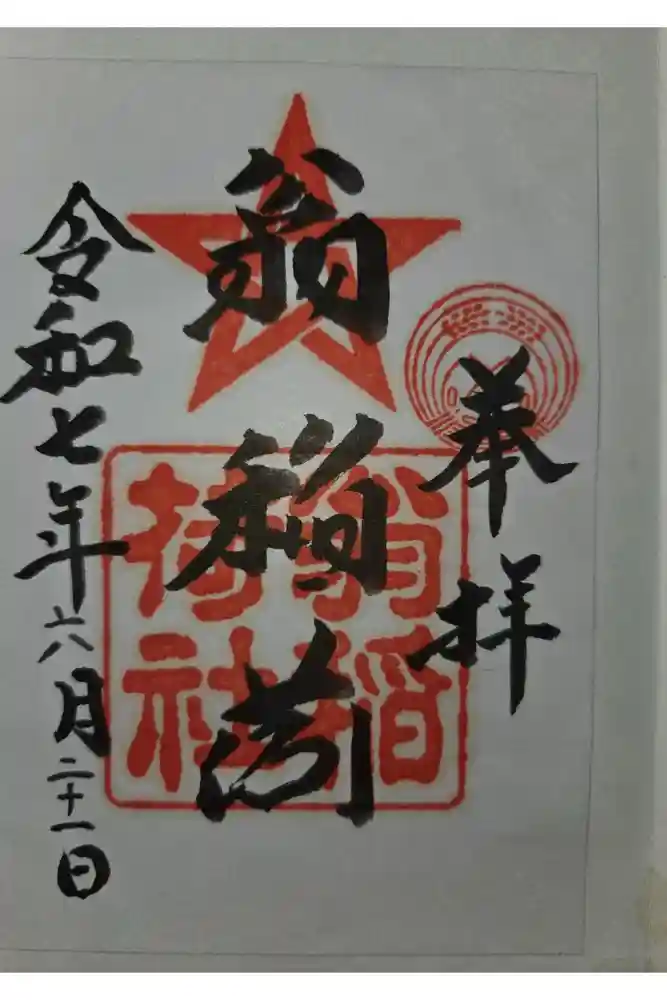 奉拝
翁稲荷
令和七年六月二十一日
翁稲
荷社